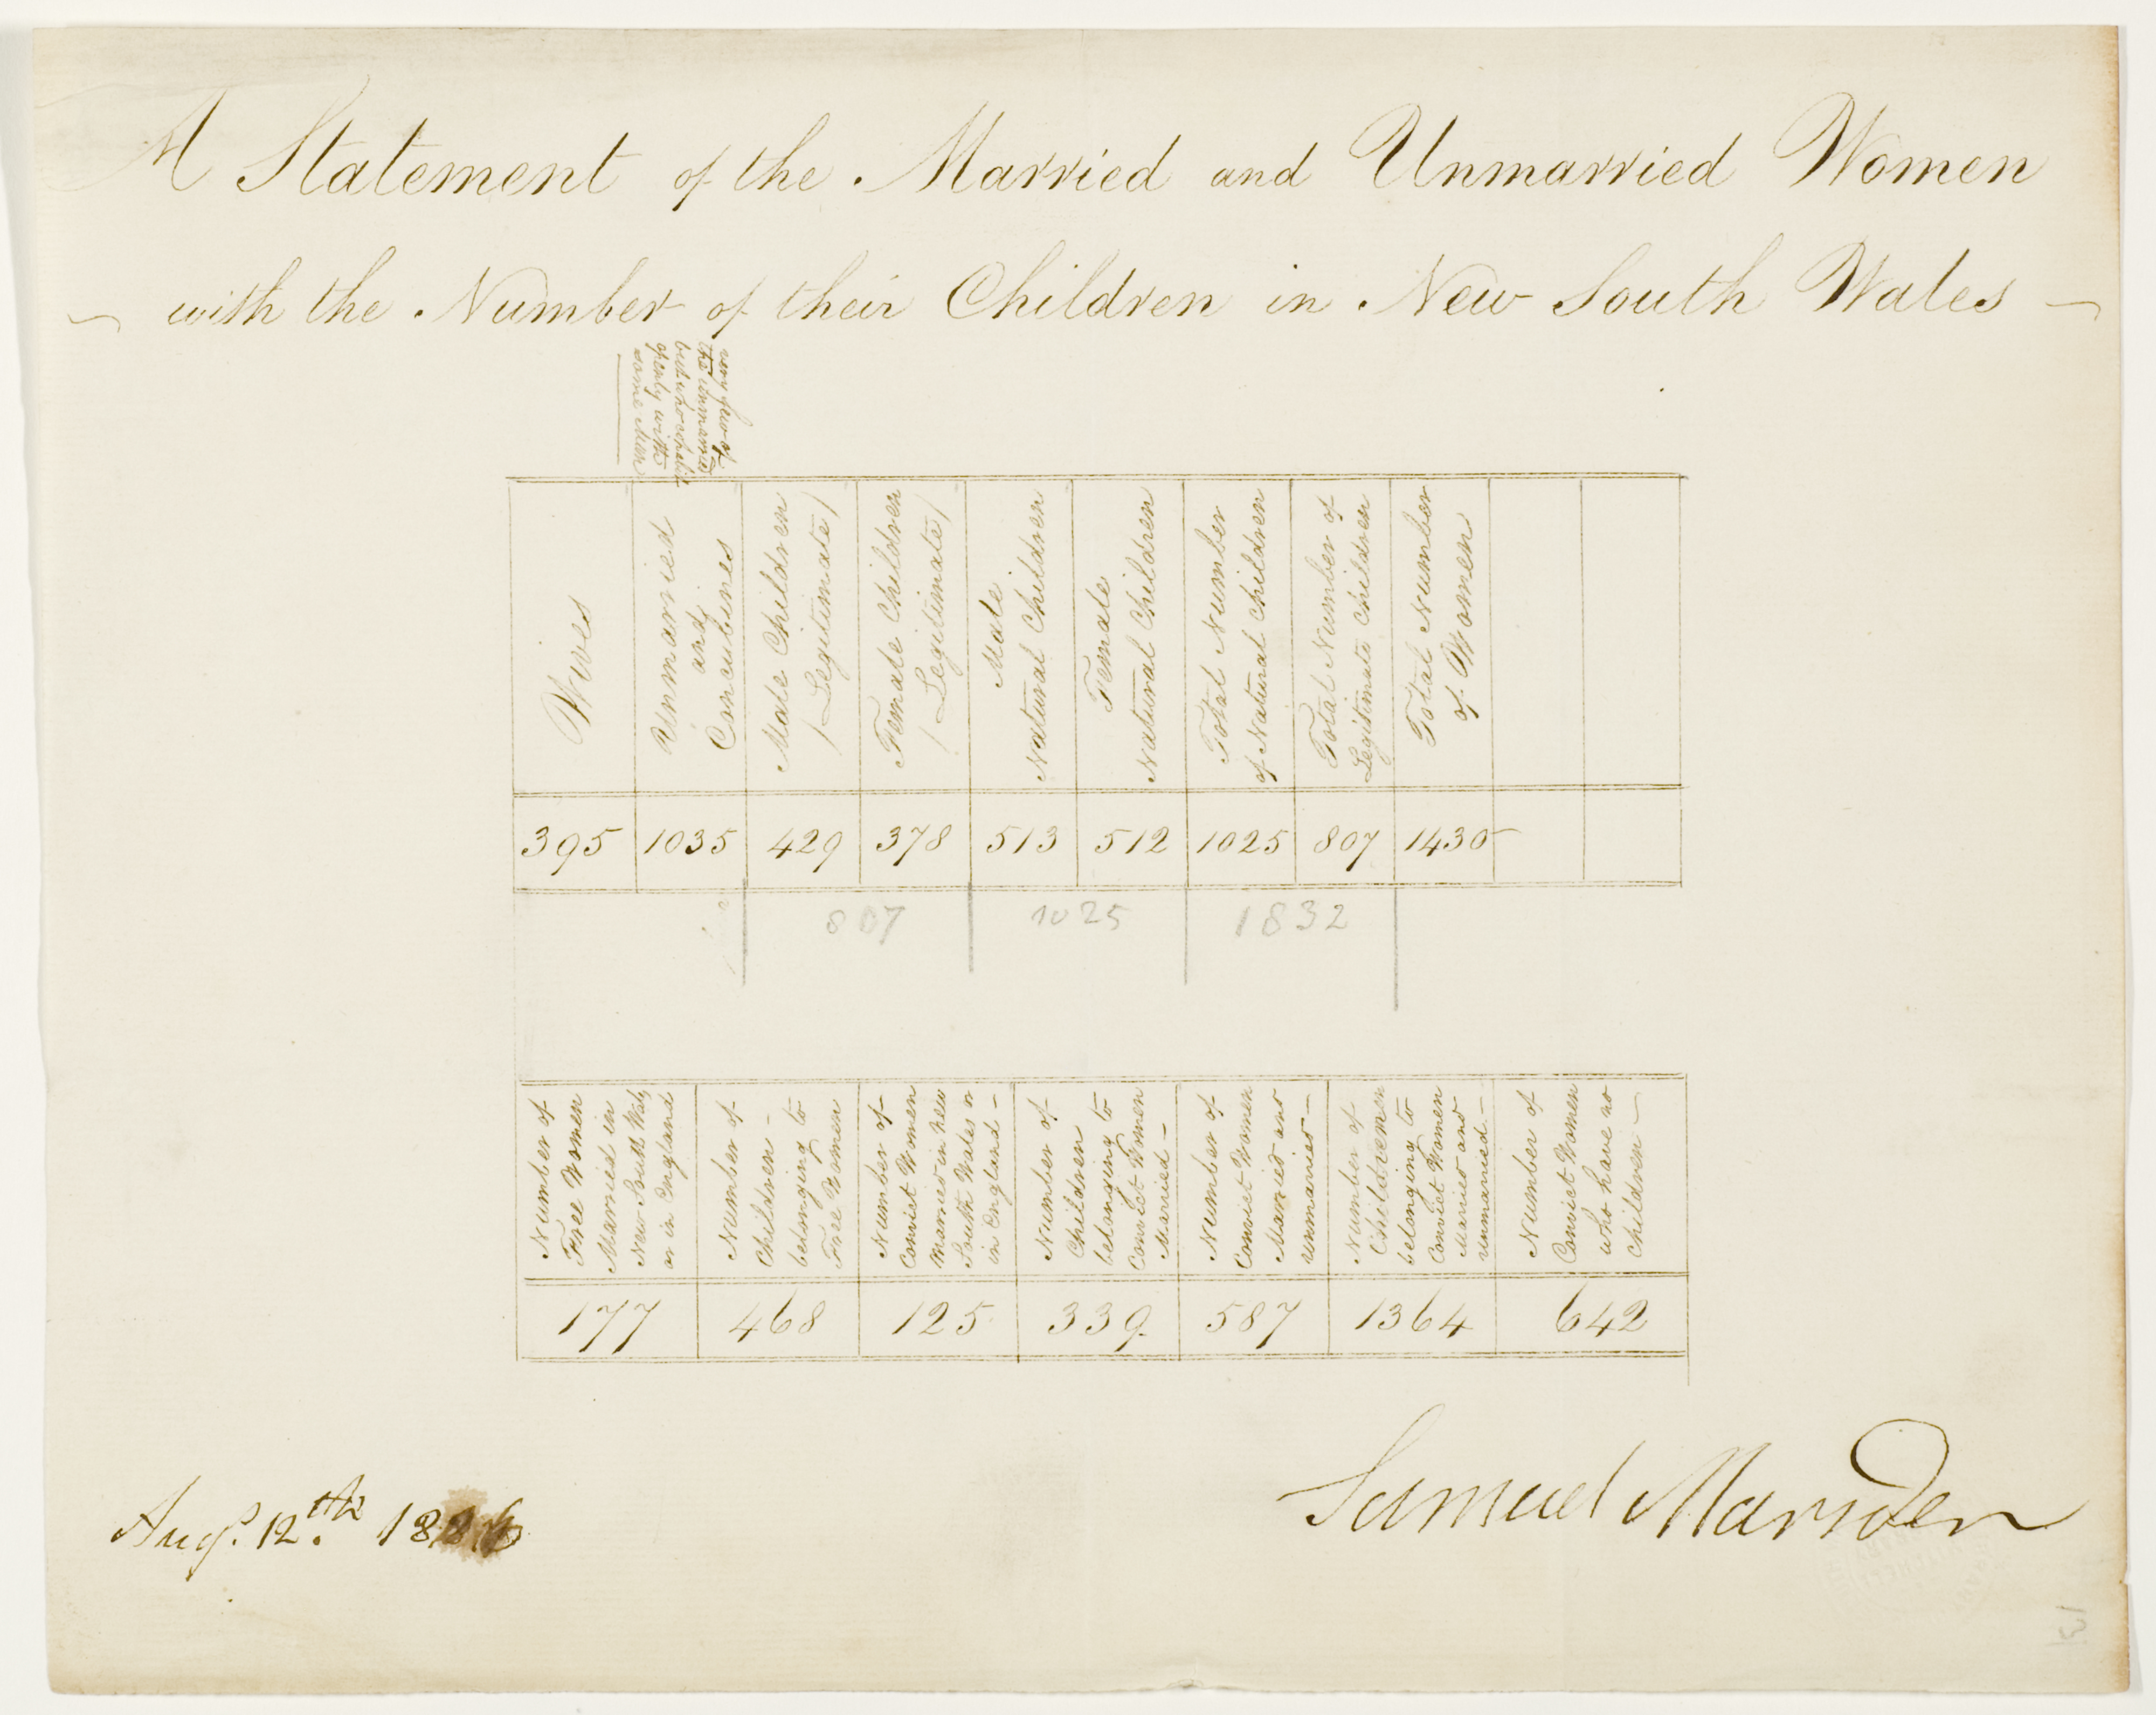 A Statement of the Married and Unmarried Women
with the Number of their Children in New South Wales
very few of
the unmarried
but who cohabit
openly with
some man
Wives
Unmarried
and
Concubines
Male Children
/Legitimate/
Female Children
/Legitimate/
Male
Natural Children
Female
Natural Children
Total Number
of Natural Children
Total Number of
Legitimate Children
Total Number
of Women
395 1035 429 378 513 512 1025 807 1430
807 1025 1832
Number of
Free Women
Married in
New South Wales
or in England
Number of
Children -
belonging to
Free Women
Number of
Convict Women
Married in New
South Wales or
in England -
Number of
Children
belonging to
Convict Women
Married -
Number of
Convict Women
Married and
unmarried -
Number of
Childremen
belonging to
Convict Women
Married and
unmarried -
Number of
Convict Women
who have no
Children -
177 468 125 339 587 1364 642
Samuel Marsden
Augt. 12th